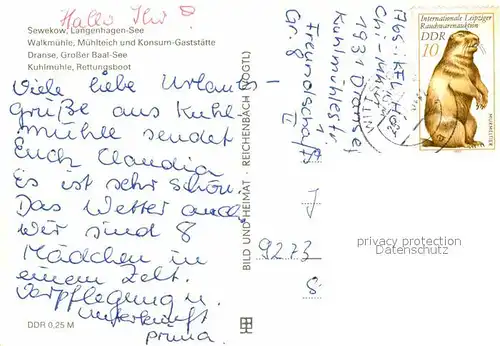 Hallo Ihr 8
Sewekow, Langenhagen-See
Walkmühle, Mühlteich und Konsum-Gaststätte
Dranse, Großer Baal-See
Kuhlmühle, Rettungsboot
Viele liebe Urlaubs-
grüße aus Kuhl-
mühle sendet
Euch Claudia
Es ist sehr schön.
Das Wetter auch.
Wir sind 8
Mädchen in
einem Zelt.
Verpflegung u.
Unterkunft
prima.
DDR 0,25 M
BILD UND HEIMAT · REICHENBACH (VOGTL)
Abs: KFL
1931 Dranse
Kuhlmühlestr. 1
Freundschaft
Gr. 8
9273
8
Internationale Leipziger
Rauchwarenauktion
DDR
10
MURMELTIER
privacy protection
Datenschutz